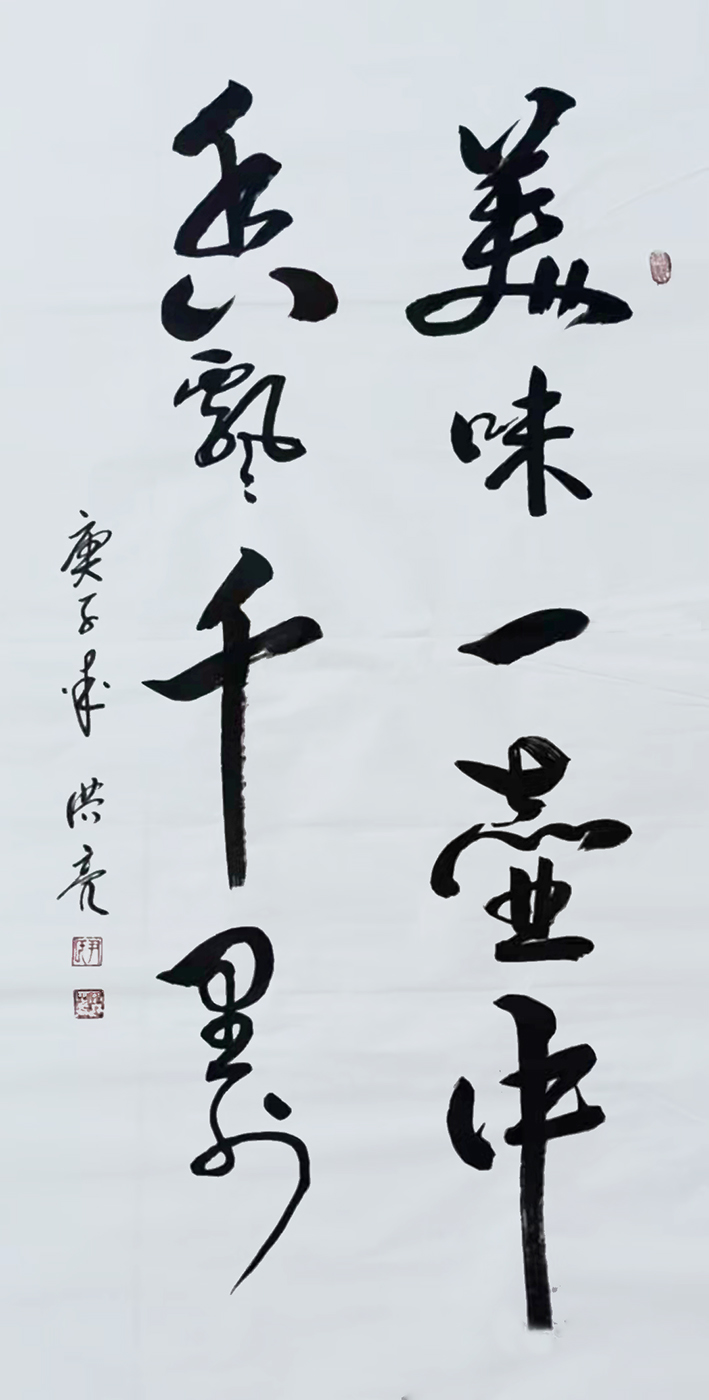 美味一壺中
香飄千里外
庚子 洪亮